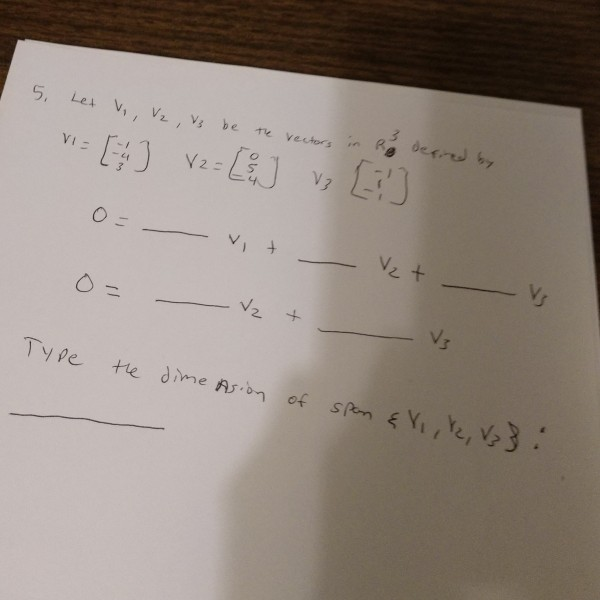 5. Let V1, V2, V3 be the vectors in R3 defined by
V1 = [-1 -4 3] V2 = [0 5 -4] V3 [-1 1 -1]
0 = ___ V1 + ___ V2 + ___ V3
0 = ___ V2 + ___ V3
Type the dimension of span {V1, V2, V3}: